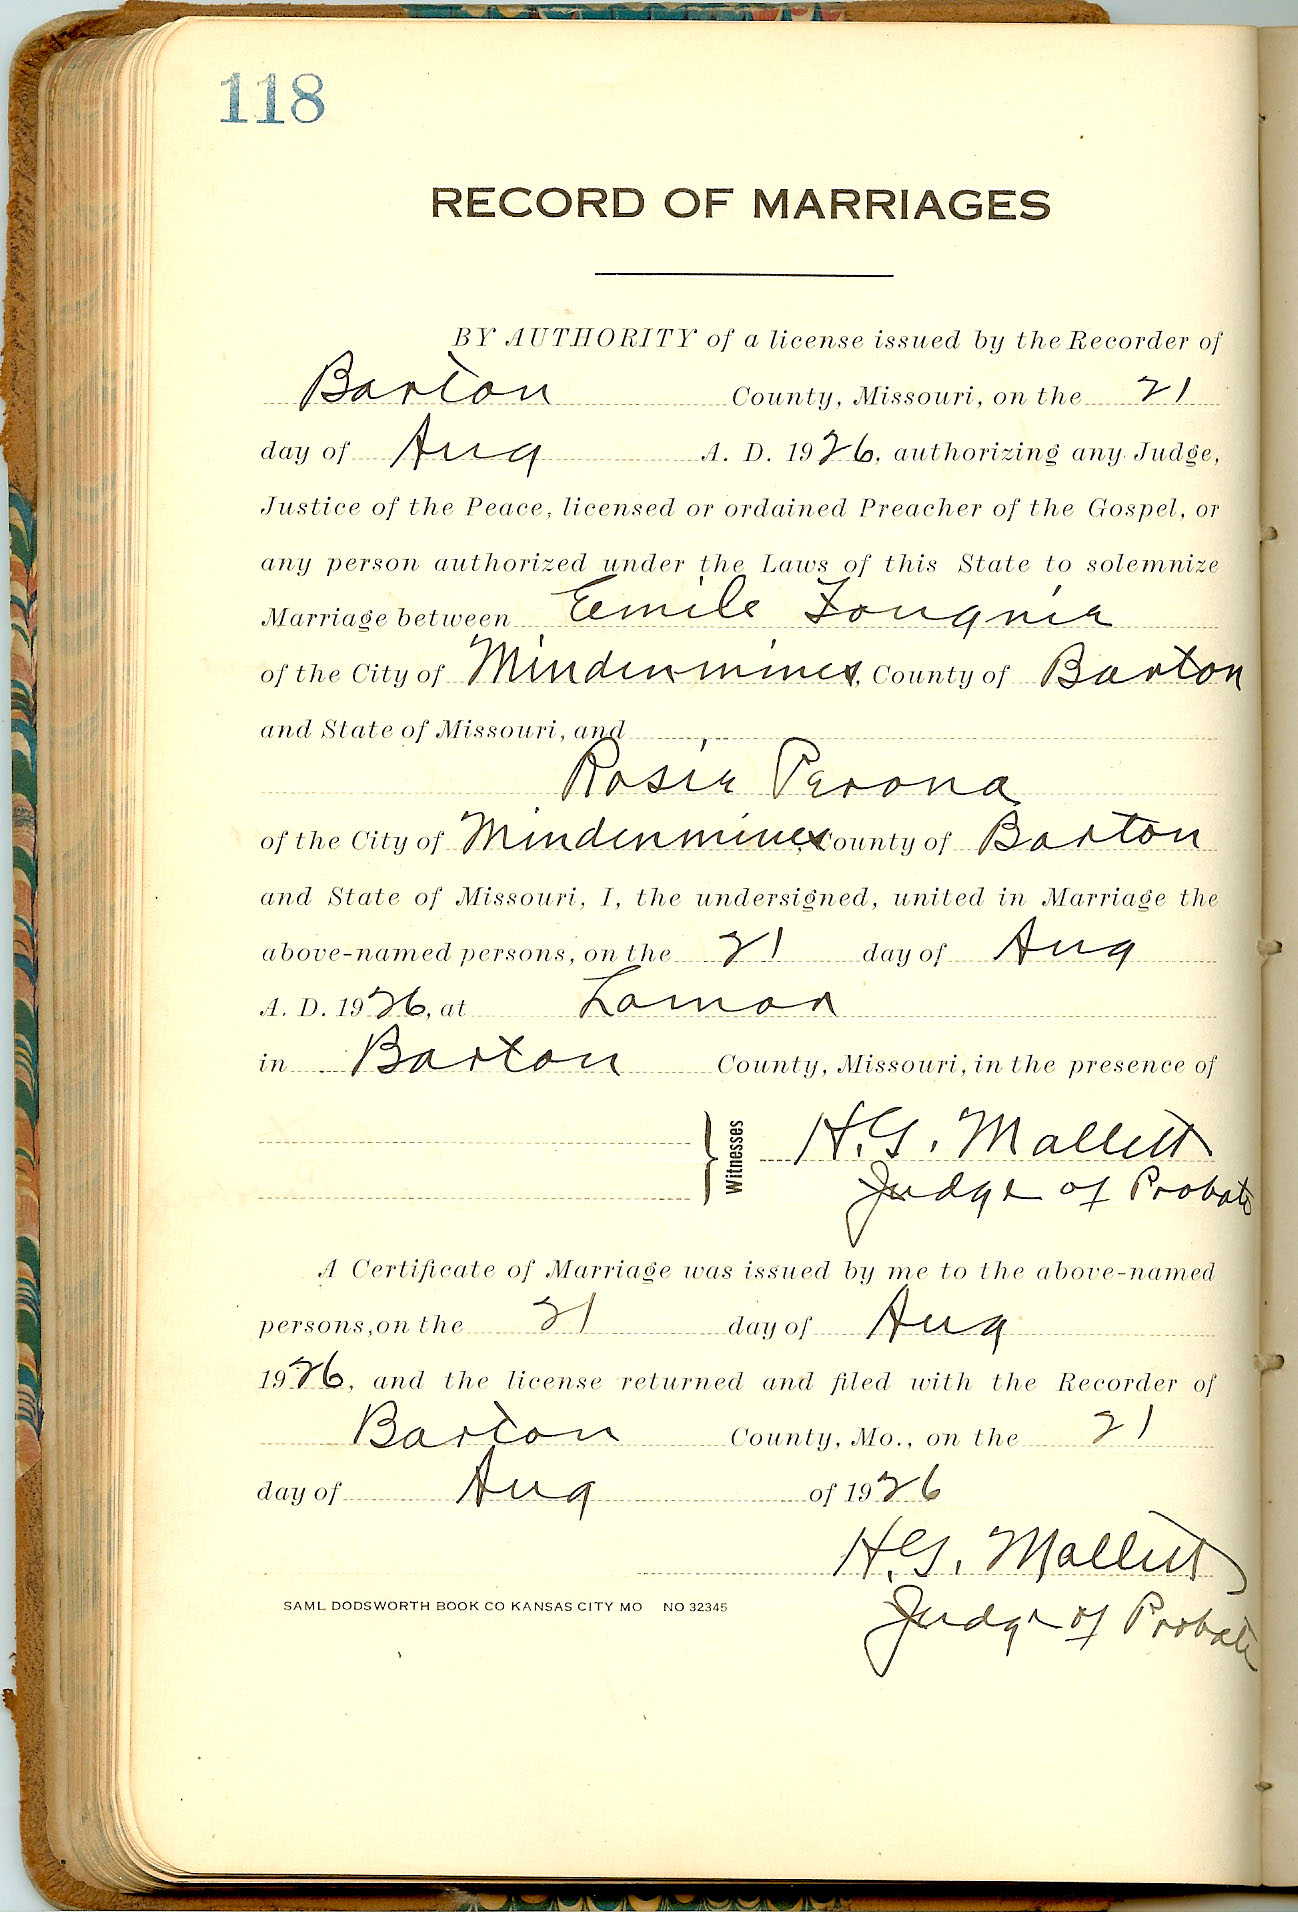 118
RECORD OF MARRIAGES
BY AUTHORITY of a license issued by the Recorder of
Barton County, Missouri, on the 21
day of Aug A. D. 1926, authorizing any Judge,
Justice of the Peace, licensed or ordained Preacher of the Gospel, or
any person authorized under the Laws of this State to solemnize
Marriage between Emile Fougnie
of the City of Mindenmines, County of Barton
and State of Missouri, and
Rosie Perona
of the City of Mindenmines, County of Barton
and State of Missouri, I, the undersigned, united in Marriage the
above-named persons, on the 21 day of Aug
A. D. 1926, at Lamar
in Barton County, Missouri, in the presence of
Witnesses H. G. Mallett
Judge of Probate
A Certificate of Marriage was issued by me to the above-named
persons, on the 21 day of Aug
1926, and the license returned and filed with the Recorder of
Barton County, Mo., on the 21
day of Aug of 1926
H. G. Mallett
Judge of Probate
SAML DODSWORTH BOOK CO KANSAS CITY MO NO 32345